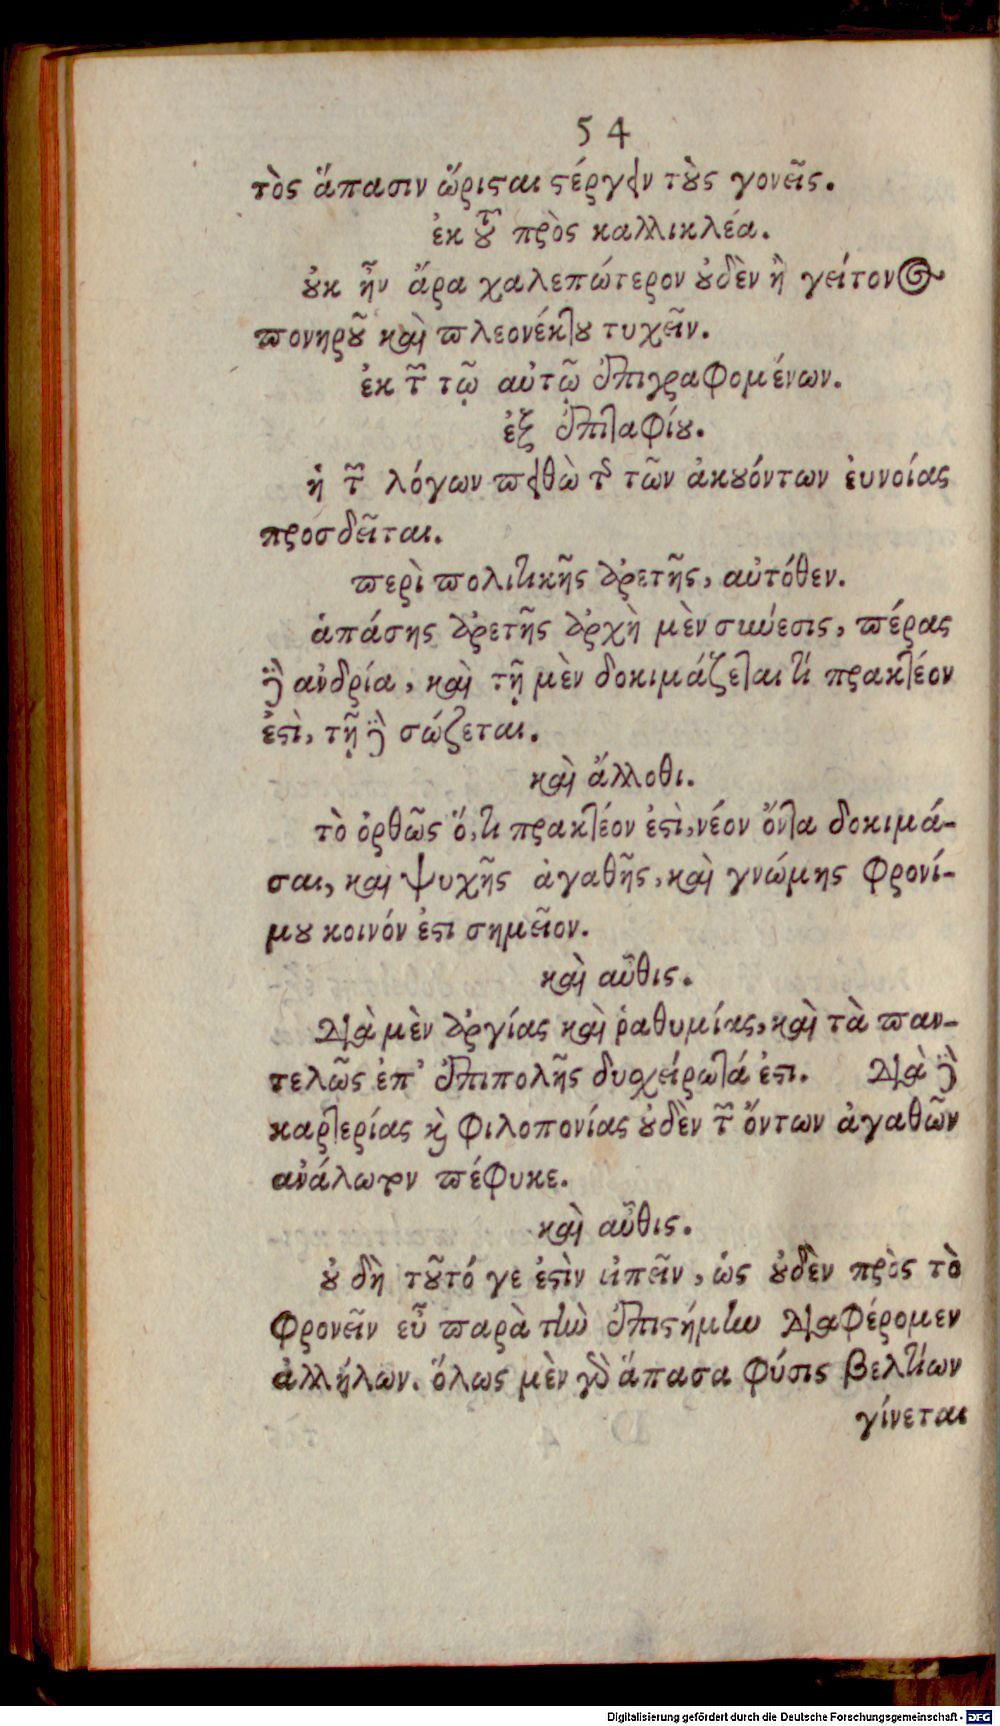 54
τὸς ἅπασιν ὥρισται στέργειν τοὺς γονεῖς.
ἐκ τοῦ πρὸς καλλικλέα.
οὐκ ἦν ἄρα χαλεπώτερον οὐδὲν ἢ γείτονος
πονηροῦ καὶ πλεονέκτου τυχεῖν.
ἐκ τῶν τῷ αὐτῷ ἐπιγραφομένων.
ἐξ ἐπιταφίου.
ἡ τῶν λόγων πειθὼ τῆς τῶν ἀκουόντων ἐυνοίας
προσδεῖται.
περὶ πολιτικῆς ἀρετῆς, αὐτόθεν.
ἁπάσης ἀρετῆς ἀρχὴ μὲν σύνεσις, πέρας
δὲ ανδρία, καὶ τῇ μὲν δοκιμάζεται τί πρακτέον
ἐστὶ, τῇ δὲ σώζεται.
καὶ ἄλλοθι.
τὸ ὀρθῶς ὅ,τι πρακτέον ἐστὶ, νέον ὄντα δοκιμά-
σαι, και ψυχῆς ἀγαθῆς, καὶ γνώμης φρονί-
μου κοινόν ἐστι σημεῖον.
καὶ αὖθις.
Διὰ μὲν ἀργίας καὶ ῥαθυμίας, καὶ τὰ παν-
τελῶς ἐπ' ἐπιπολῆς δυσχείρωτά ἐστι. Διὰ δὲ
καρτερίας καὶ φιλοπονίας οὐδὲν τῶν ὄντων ἀγαθῶν
ανάλωτον πέφυκε.
καὶ αὖθις.
οὐ δὴ τοῦτό γε ἐστὶν εἰπεῖν, ὡς οὐδὲν πρὸς τὸ
φρονεῖν εὖ παρὰ τὴν ἐπιστήμην διαφέρομεν
ἀλλήλων. ὅλως μὲν γὰρ ἅπασα φύσις βελτίων
γίνεται
Digitalisierung gefördert durch die Deutsche Forschungsgemeinschaft - DFG